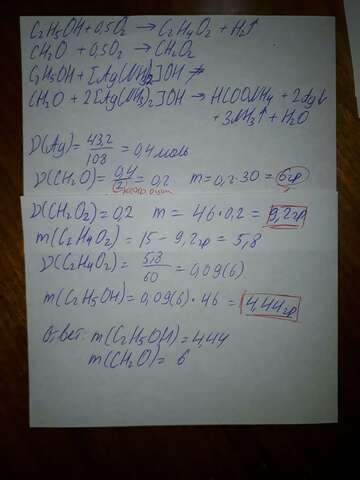 C₂H₅OH + 0,5O₂ → C₂H₄O₂ + H₂↑
CH₂O + 0,5O₂ → CH₂O₂
C₂H₅OH + [Ag(NH₃)₂]OH ↛
CH₂O + 2[Ag(NH₃)₂]OH → HCOONH₄ + 2Ag↓
+ 3NH₃↑ + H₂O
ν(Ag) = 43,2/108 = 0,4 моль
ν(CH₂O) = 0,4/2 = 0,2 m = 0,2·30 = 6гр
ν(CH₂O₂) = 0,2 m = 46·0,2 = 9,2гр
m(C₂H₄O₂) = 15 – 9,2гр = 5,8
ν(C₂H₄O₂) = 5,8/60 = 0,09(6)
m(C₂H₅OH) = 0,09(6)·46 = 4,44гр
Ответ: m(C₂H₅OH) = 4,44
m(CH₂O) = 6